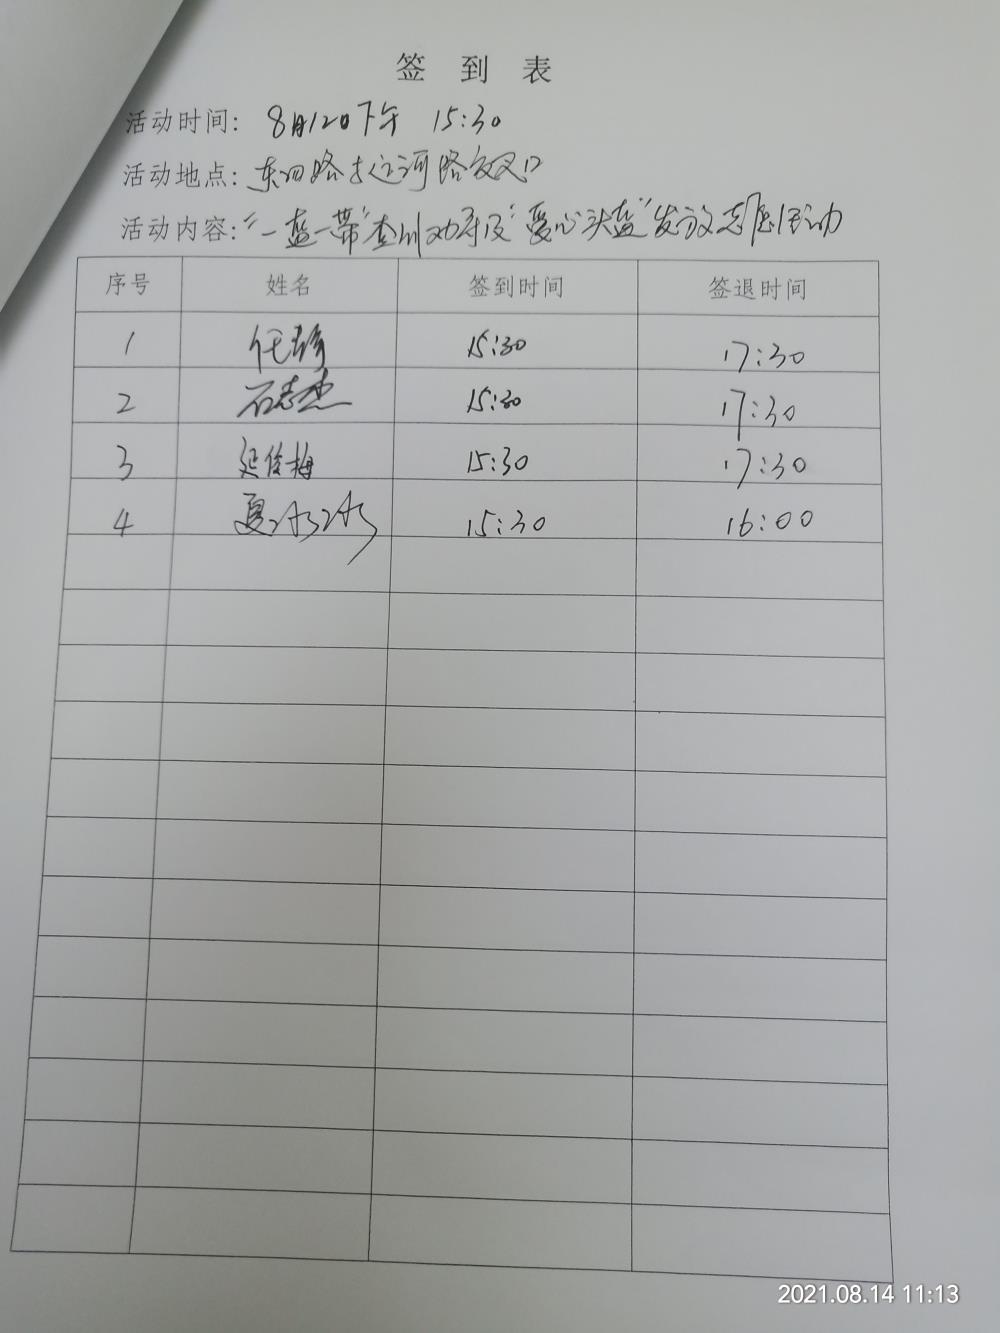 签到表
活动时间: 8月12日下午 15:30
活动地点: 东四路与运河路交叉口
活动内容: “一盔一带”查纠劝导及“爱心头盔”发放志愿活动
序号 姓名 签到时间 签退时间
1 任 15:30 17:30
2 石志杰 15:30 17:30
3 延俊梅 15:30 17:30
4 夏冰冰 15:30 16:00
2021.08.14 11:13